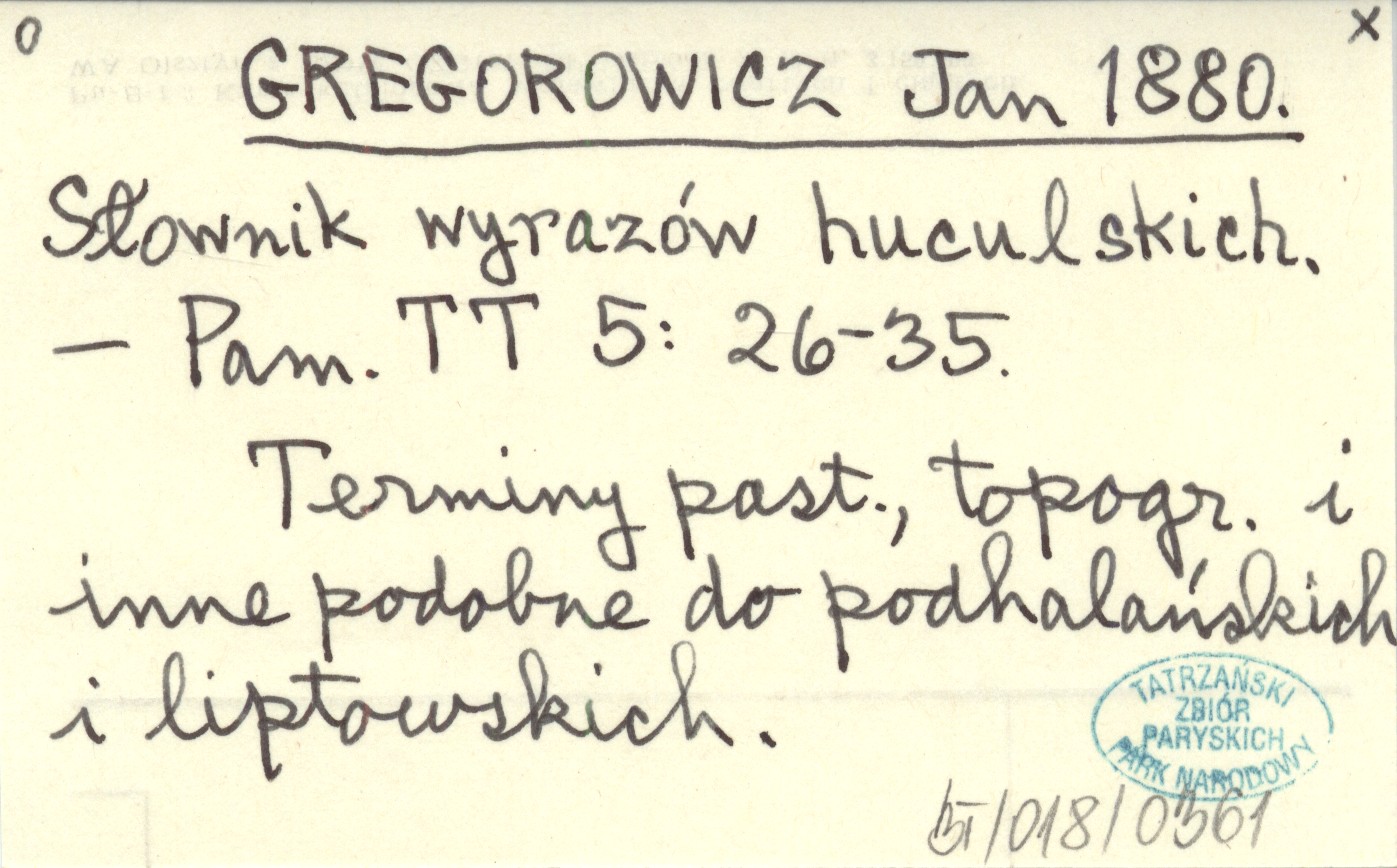 o x
GREGOROWICZ Jan 1880.
Słownik wyrazów huculskich.
— Pam. TT 5: 26-35.
Terminy past., topogr. i
inne podobne do podhalańskich
i liptowskich.
TATRZAŃSKI
ZBIÓR
PARYSKICH
PARK NARODOWY
/018/0361